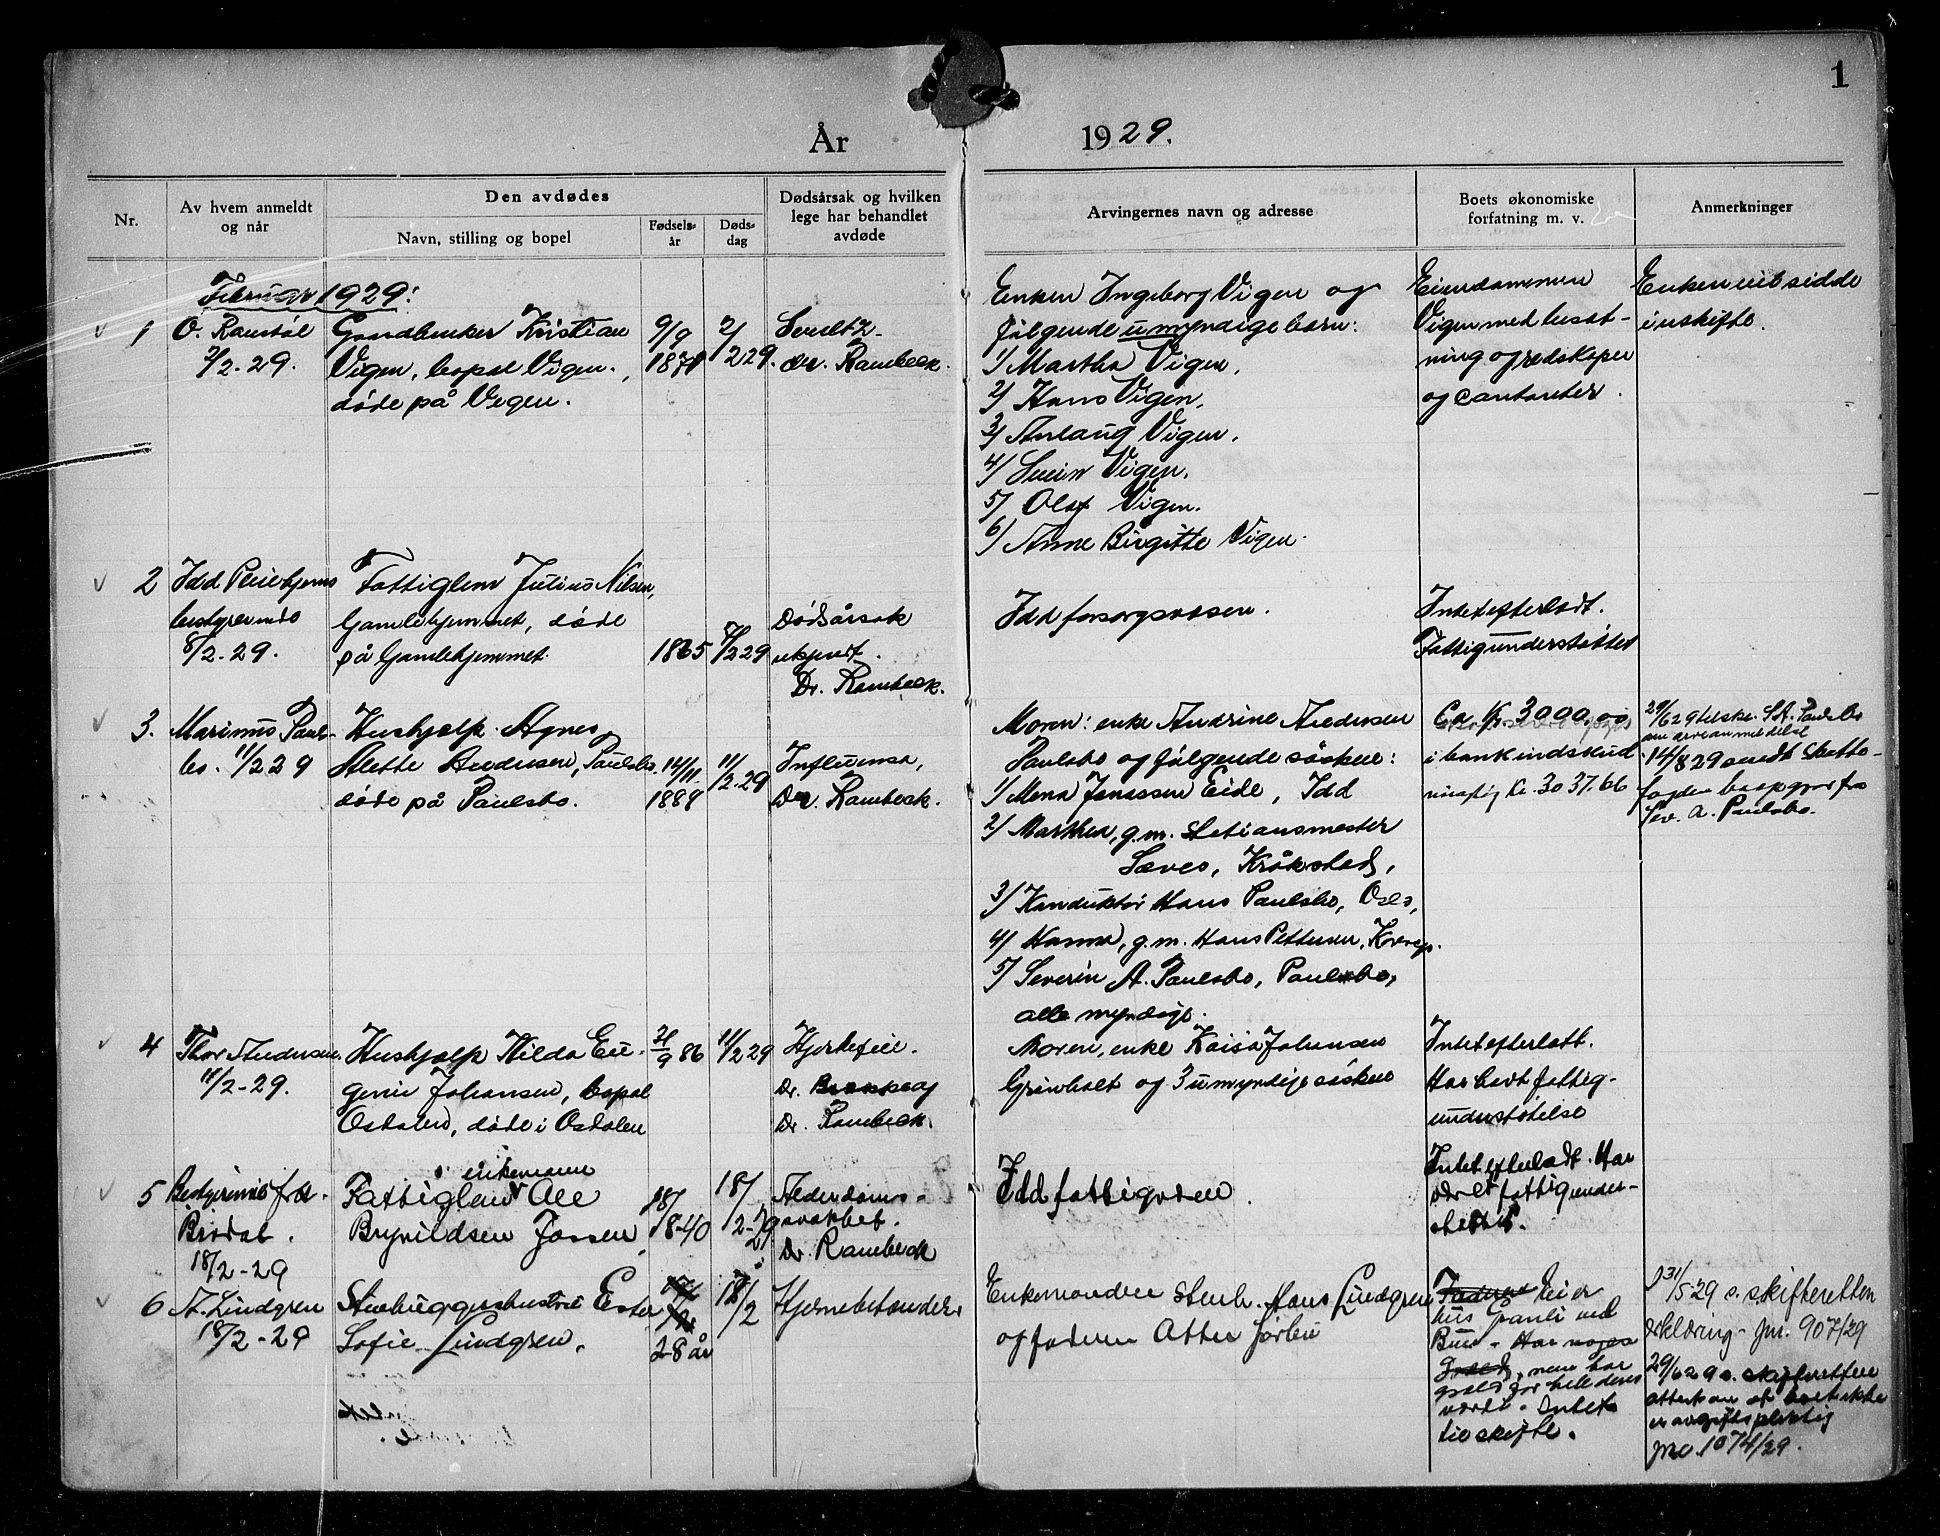 1
År 1929.
Nr.
Av hvem anmeldt
og når
Den avdødes
Navn, stilling og bopel
Fødsels-
år
Døds-
dag
Dødsårsak og hvilken
lege har behandlet
avdøde
Arvingernes navn og adresse
Boets økonomiske
forfatning m. v.
Anmerkninger
Februar 1929:
1
O. Ramstøl
2/2-29.
Gaardbruker Kristian
Vigen, bopæl Vigen.
døde på Vigen.
9/9
1871
2/
2 29.
dr. Rambeck.
Enken Ingeborg Vigen og
følgende umyndige barn:
1/ Martha Vigen,
2/ Hans Vigen,
3/ Aslaug Vigen,
4/ Svein Vigen,
5/ Olaf Vigen.
6/ Anne Birgitte Vigen.
Eiendommen
Vigen med besæt-
ning og redskaper
og contanter.
Enken uitsidde
i uskifte.
2
Idd Pleiehjems
bestyrerinde
8/2-29.
Fattiglem Julius Nilsen,
Gamlehjemmet, døde
på Gamlehjemmet
1865
7/2 29
Dødsårsak
ukjent.
Dr. Rambeck.
Idd forsorgsvæsen.
Intet efterladt.
Fattigunderstøttet
3.
Marinus Pauls-
bo. 11/2 29
Hushjælp Agnes
Alette Andersen, Paulsbo.
døde på Paulsbo.
14/11-
1889
11/
2-29
Influensa,
Dr. Rambeck.
Moren: enke Andrine Andersen
Paulsbo og følgende søsken:
1/ Mena Jonassen Eide, Idd
2/ Marthea, g.m. stationsmester
Sæves, Kråkstad,
3/ Konduktør Hans Paulsbo, Oslo,
4/ Hanna, g.m. Hans Pettersen,
5/ Severin A. Paulsbo, Paulsbo,
alle myndige.
Ca. kr. 3000,00
i bankindskud
kr. 3037.66
29/6 29 S.A. Paulsbo
om arveanmeldelse
14/8 29 sendt skatte-
fogden boopgjør fra
Sev. A. Paulsbo.
4
Thor Andersen
11/2-29.
Hushjælp Hilda Eu-
genie Johansen, bopæl
Osdalen, døde i Osdalen
21/9 86
11/2 29
Hjertefeil.
Dr.
Dr. Rambeck.
Moren, enke Kaisa Johansen
Grinholt og 3 umyndige søsken
Intet efterlatt.
Har havt fattig-
understøttelse
5
Bestyrerinde frk.
Brødal.
18/2-29
enkemann
Fattiglem Ole
Brynildsen Jossen
18/
1840
18/
2-29
Alderdoms-
svakhet.
Dr. Rambeck
Idd fattigvæsen.
Intet efterladt. Har
været fattigunder-
støttet.
6
A. Lindgren
18/2-29
Stenhuggerhustru Ester
Sofie Lindgren,
28 år
18/2
Hjernebetændelse
Enkemanden stenh. Hans Lindgren
og faderen Otter Jørlu
eier
hus Granli ved
Buer. Har noget
gjæld, men har
gjæld for hele deres
værdi. Intet
til skifte.
31/5 29 s. skifteretten
erklæring jnr. 907/29
29/6 29 s. skifteretten
attest om at boet ikke
er avgiftspliktig
jnr. 1074/29.